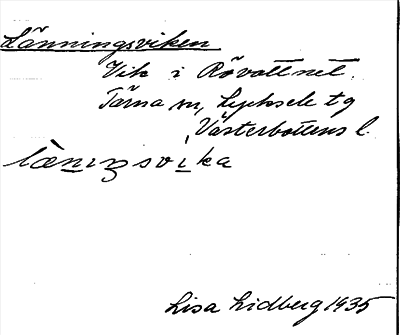 Länningsviken
Vik i Rövattnet.
Tärna sn, Lycksele tg
Västerbottens l.
læ̀niŋsvìka
Lisa Lidberg 1935